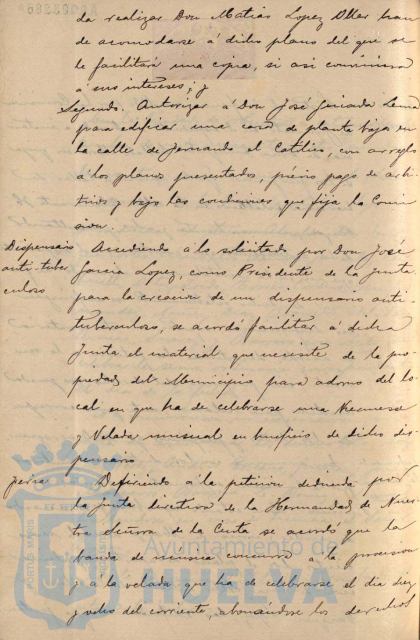 da realizar Don Matias Lopez Oller han
de acomodarse á dicho plano del que se
le facilitará una copia, si asi conviniera
á sus intereses; y
Segundo. Autorizar á Don José Lema
para edificar una casa de planta baja en
la calle de Fernando el Católico, con arreglo
á los planos presentados, prévio pago de arbi-
trios y bajo las condiciones que fija la Comi-
sion.
Dispensario
anti-tuber
culoso
Accediendo á lo solicitado por Don José
Garcia Lopez, como Presidente de la Junta
para la creacion de un dispensario anti
tuberculoso, se acordó facilitar á dicha
Junta el material que necesite de la pro-
piedad del Municipio para adorno del lo-
cal en que ha de celebrarse una Kermesse
y Velada musical en beneficio de dicho dis-
pensario
Defiriendo á la peticion deducida por
la Junta directiva de la Hermandad de Nues-
tra Señora de la Cinta se acordó que la
banda de musica concurra á la procesion
y á la velada que ha de celebrarse el dia diez
y ocho del corriente, abonandose los derechos
PORTUS MARIS
Ayuntamiento de
HUELVA